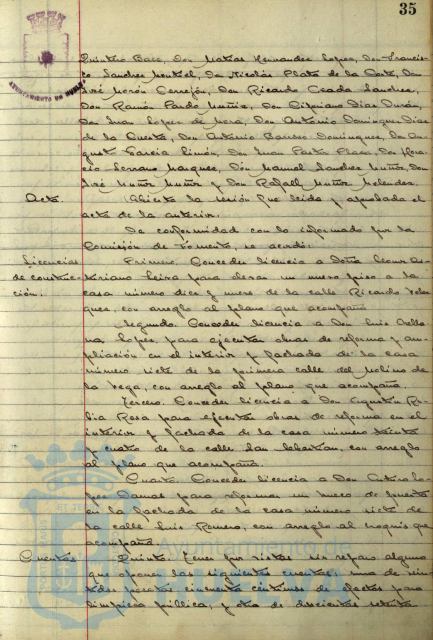 35
AYUNTAMIENTO DE HUELVA
Quintero Baez, Don Matias Hernandez Lopez, Don Francis-
co Sanchez Montiel, Don Nicolás Plata de la Corte, Don
José Morón Cerrejón, Don Ricardo Ceada Sanchez,
Don Ramón Pardo Muñiz, Don Cipriano Diaz Durán,
Don Juan Lopez de Mora, Don Antonio Dominguez Diaz
de la Cuesta, Don Antonio Barroso Dominguez, Don Au-
gusto Garcia Limón, Don Juan Pastor Don Hora-
cio Serrano Marquez, Don Manuel Sanchez Muñoz, Don
José Muñoz Muñoz y Don Rafael Muñoz Melendez.
Acta. Abierta la sesión fue leida y aprobada el
acta de la anterior.
De conformidad con lo informado por la
Comisión de Fomento, se acordó:
Licencias Primero. Conceder licencia a Doña Leonor As-
de construc- para elevar un nuevo piso a la
ción. casa número diez y nueve de la calle Ricardo Velaz-
quez, con arreglo al plano que acompaña.
Segundo. Conceder licencia a Don Luis
Lopez, para ejecutar obras de reforma y am-
pliación en el interior y fachada de la casa
número siete de la primera calle del Molino de
la Vega, con arreglo al plano que acompaña
Tercero. Conceder licencia a Don Agustín Ru-
bia Rosa para ejecutar obras de reforma en el
interior y fachada de la casa número
y cuatro de la calle San Sebastian, con arreglo
al plano que acompaña.
Cuarto. Conceder licencia a Don Arturo Lo-
pez Damas para reformar un hueco de puerta
en la fachada de la casa número siete de
la calle Luis Romero, con arreglo al croquis que
acompaña
Cuentas Quinto. Tener por vistas sin reparo alguno
que oponer las siguientes cuentas: una de
pesetas cincuenta céntimos de efectos para
limpieza pública, y otra de doscientas setenta